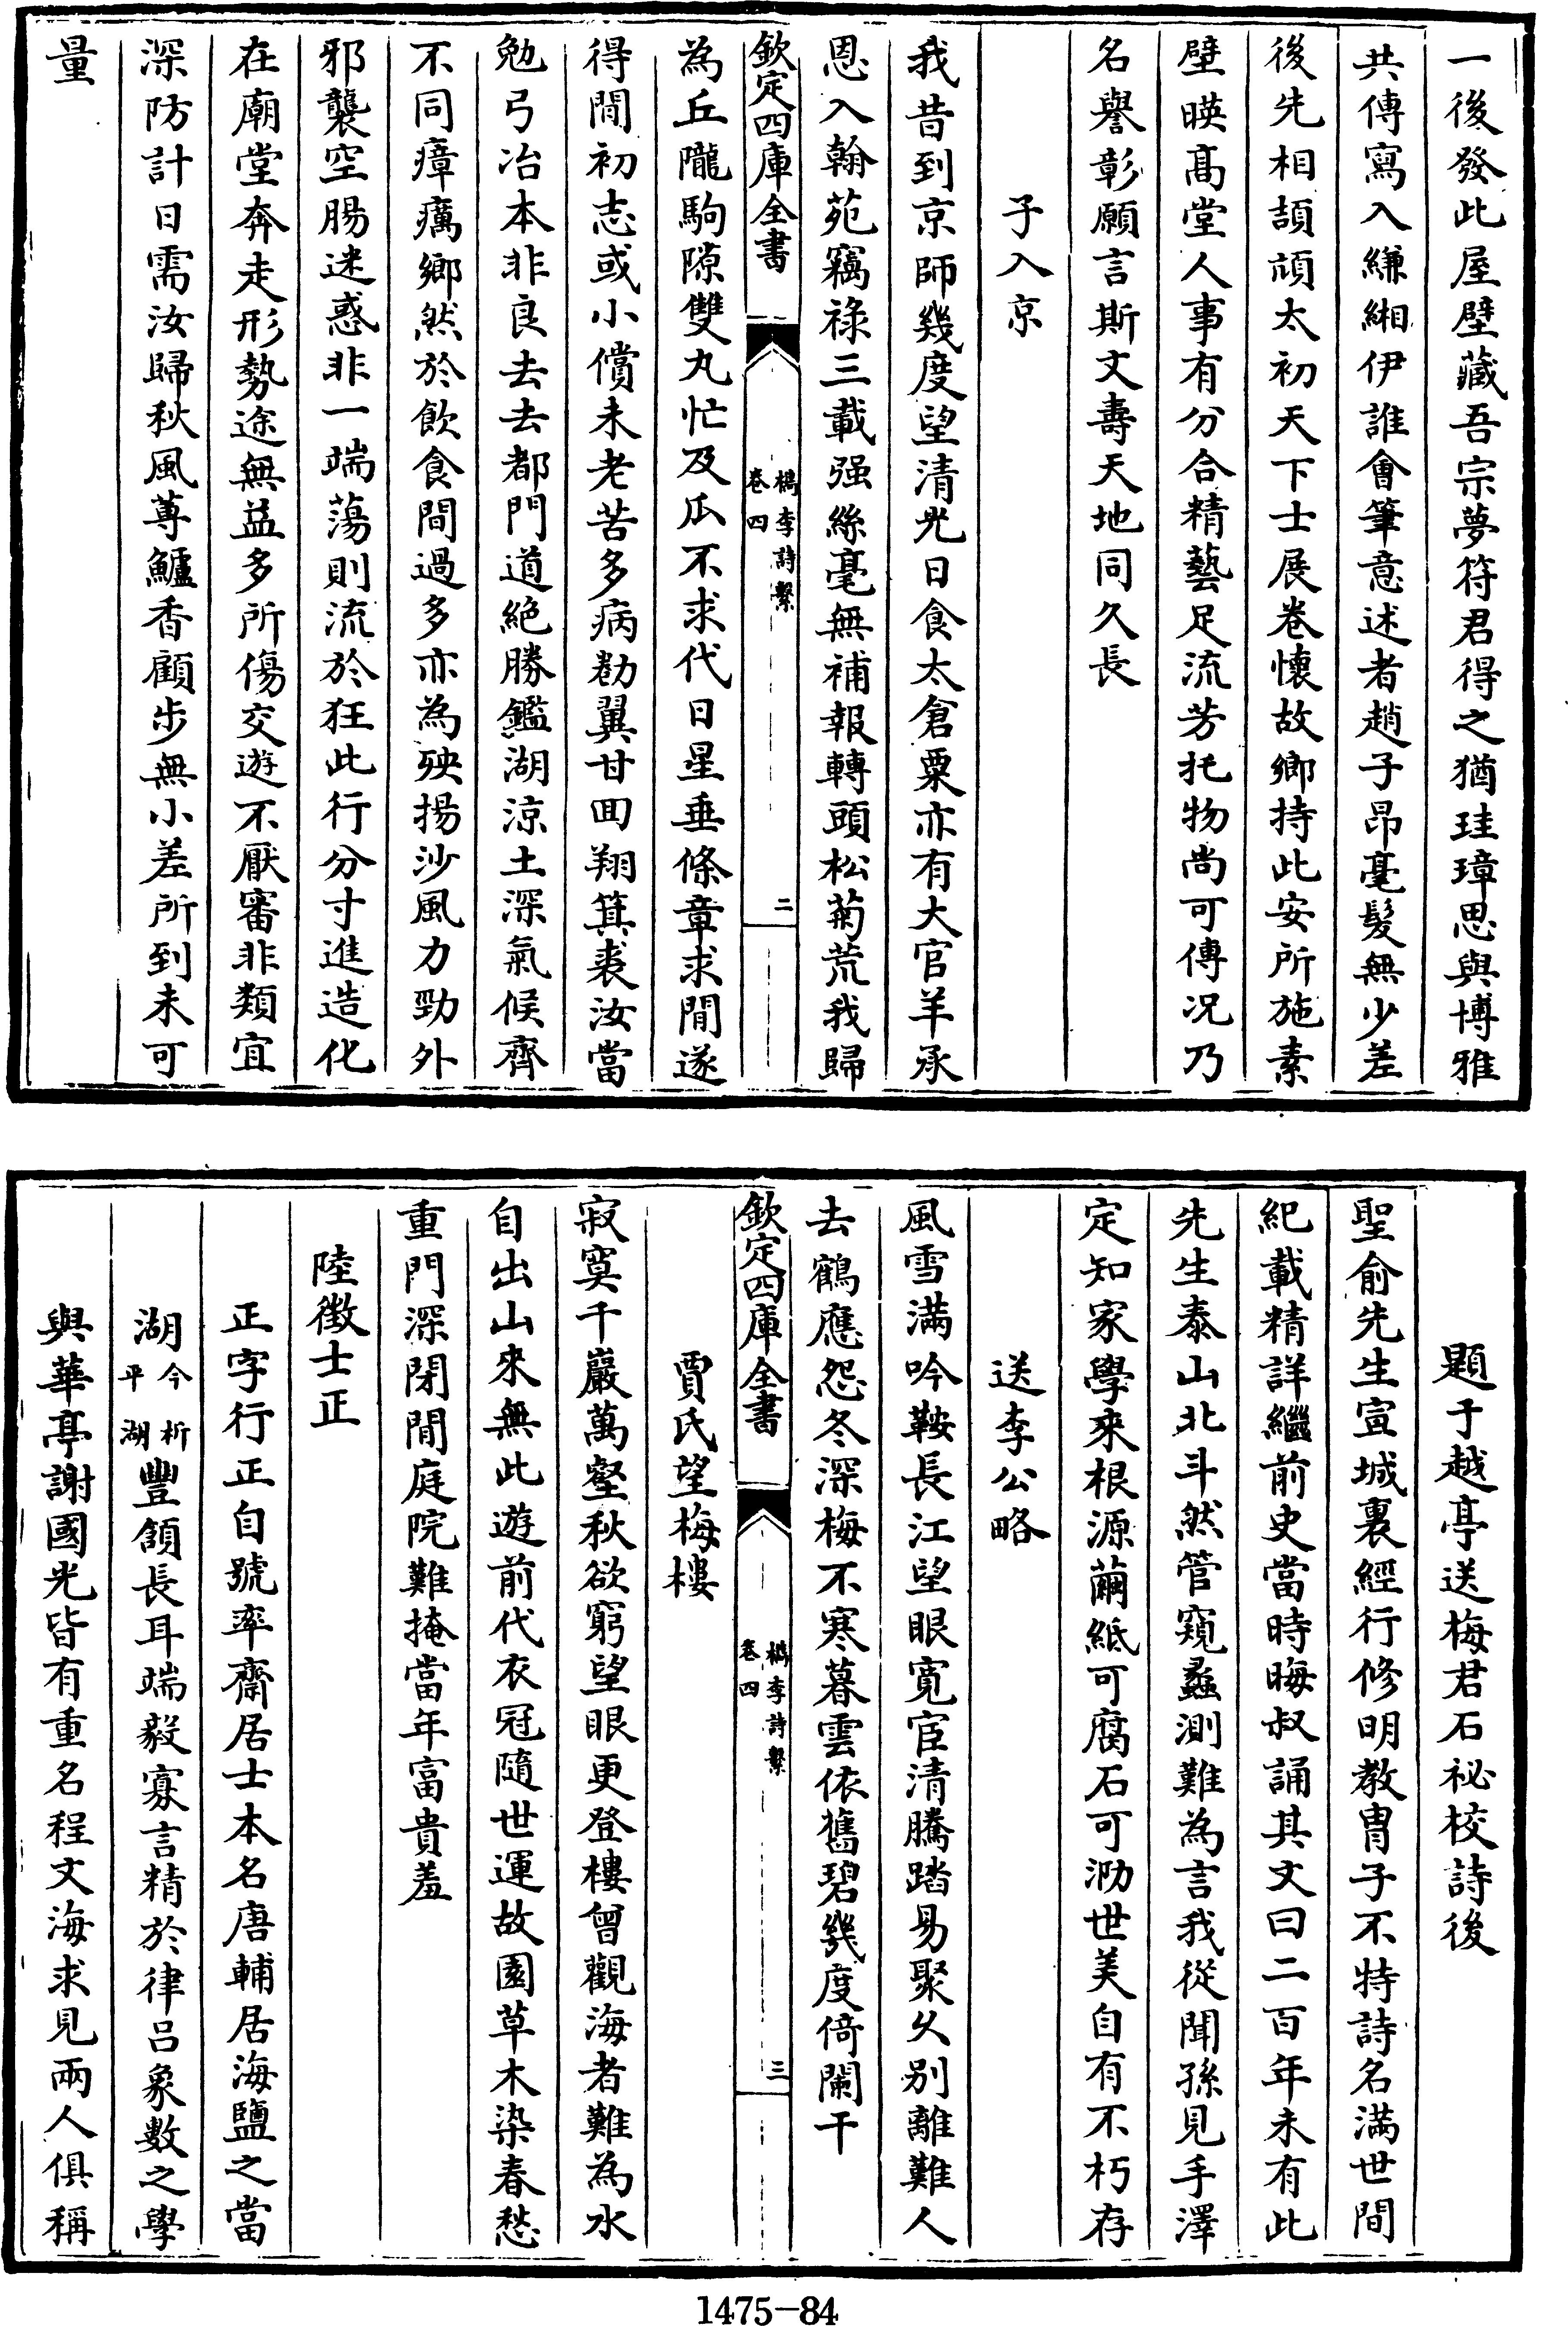 一後發此屋壁藏吾宗夢符君得之猶珪璋思與博雅
共傳寫入縑緗伊誰會筆意述者趙子昂毫髮無少差
後先相頡頏太初天下士展卷懷故鄉持此安所施素
壁暎髙堂人事有分合精藝足流芳托物尚可傳况乃
名譽彰願言斯文壽天地同久長
子入京
我昔到京師幾度望清光日食太倉粟亦有大官羊承
恩入翰苑竊祿三載强絲毫無補報轉頭松菊荒我歸
欽定四庫全書
檇李詩繫
卷四
二
為丘隴駒隙雙丸忙及瓜不求代日星垂條章求閒遂
得閒初志或小償未老苦多病勌翼甘回翔箕裘汝當
勉弓冶本非良去去都門道絶勝鑑湖涼土深氣候齊
不同瘴癘鄉然於飲食間過多亦為殃揚沙風力勁外
邪襲空腸迷惑非一端蕩則流於狂此行分寸進造化
在廟堂奔走形勢途無益多所傷交遊不厭審非類宜
深防計日需汝歸秋風蓴鱸香顧步無小差所到未可
量
題于越亭送梅君石祕校詩後
聖俞先生宣城裏經行修明教胄子不特詩名滿世間
紀載精詳繼前史當時晦叔誦其文曰二百年未有此
先生泰山北斗然管窺蠡測難為言我從聞孫見手澤
定知家學來根源繭紙可腐石可泐世美自有不朽存
送李公略
風雪滿吟鞍長江望眼寛宦清騰踏易聚乆别離難人
去鶴應怨冬深梅不寒暮雲依舊碧幾度倚闌干
欽定四庫全書
檇李詩繫
卷四
三
賈氏望梅樓
寂寞千巖萬壑秋欲窮望眼更登樓曾觀海者難為水
自出山來無此遊前代衣冠隨世運故園草木染春愁
重門深閉閒庭院難掩當年富貴羞
陸徵士正
正字行正自號率齋居士本名唐輔居海鹽之當
湖今析平湖豐頷長耳端毅寡言精於律吕象數之學
與華亭謝國光皆有重名程文海求見兩人俱稱
1475-84